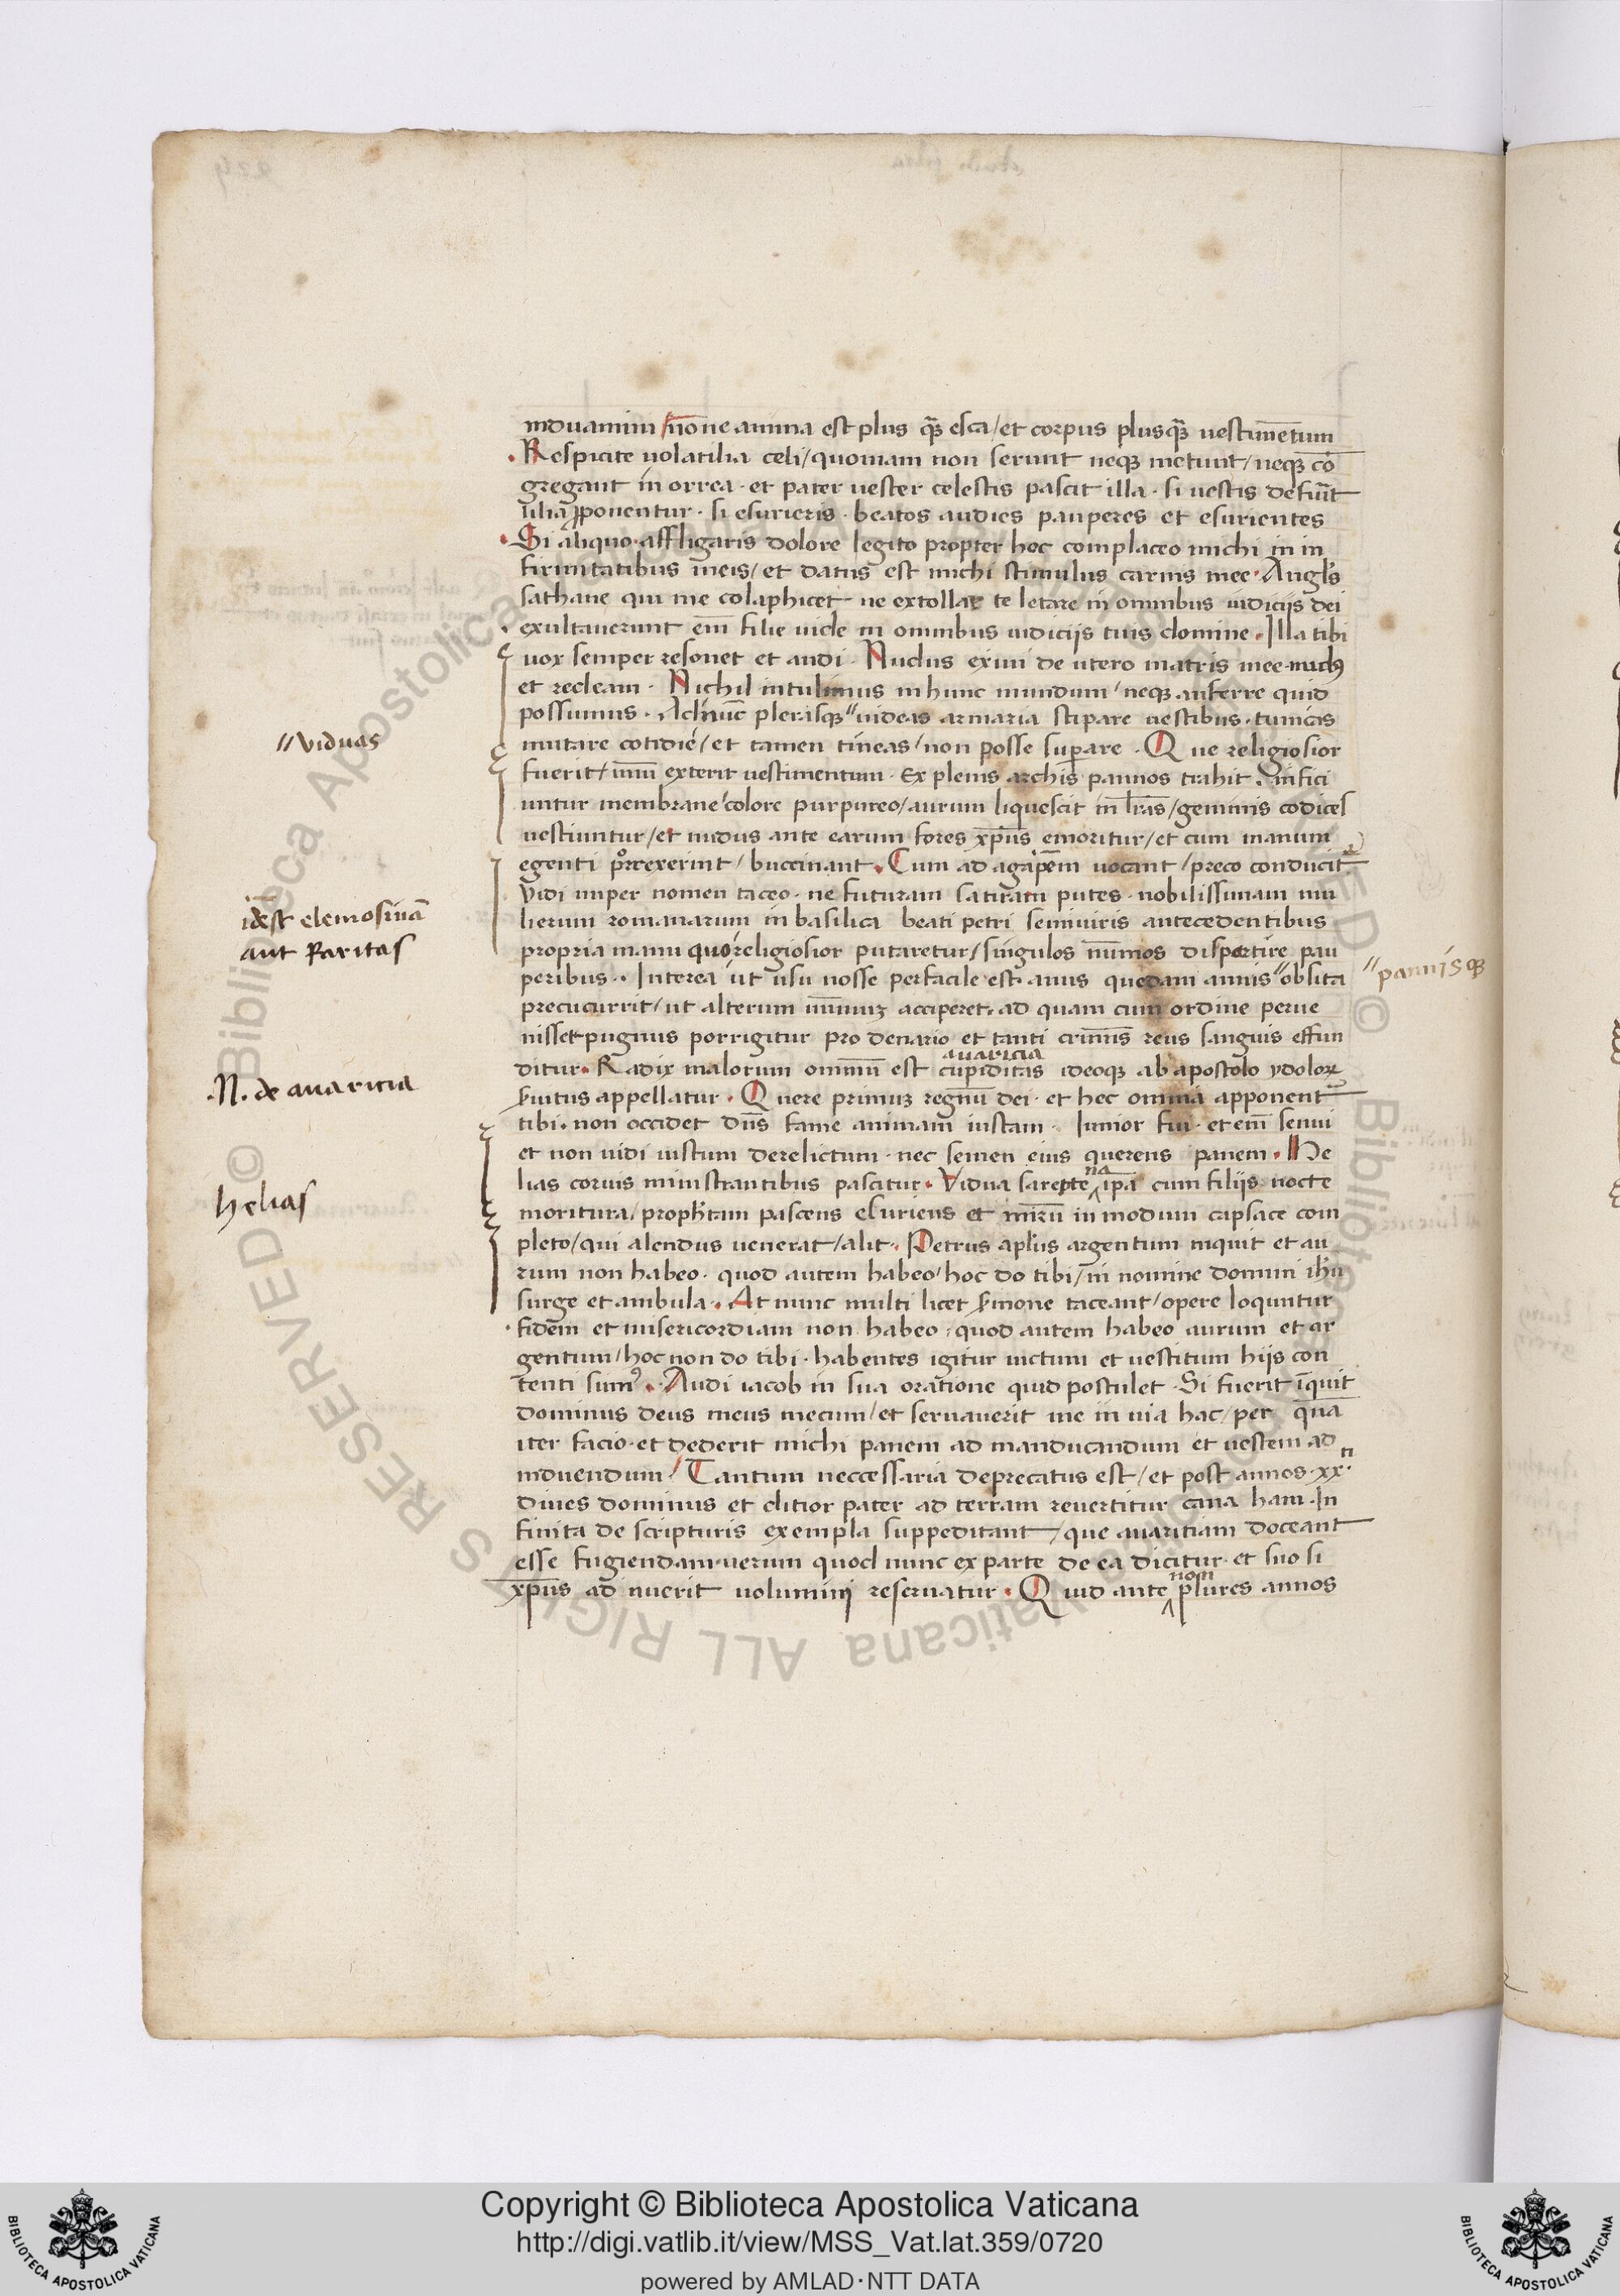 induamini nōne anima est plus qȝ esca/et corpus plusqȝ uestimētum
Respicite uolatilia celi/quoniam non serunt neqȝ metunt/neqȝ cō
gregant in orrea· et pater uester celestis pascit illa· si uestis defuīt
lilia ꝓponentur· si esurieris· beatos audies pauperes et esurientes
Si aliquo affligaris dolore legito propter hoc complaceo michi in in
firmitatibus meis/et datus est michi stimulus carnis mee· Angl's
sathane qui me colaphicet ne extollar te letare in omnibus iudiciis dei
exultauerunt em̄ filie iude in omnibus iudiciis tuis domine· Illa tibi
uox semper resonet et audi· Nudus exiui de utero matris mee nudꝰ
et redeam· Nichil intulimus in hunc mundum/neqȝ auferre quid
possumus· Ac nūc plerasqȝ "uideas armaria stipare uestibus· tunicas
"viduas
mutare cotidie/et tamen tineas/non posse suꝑare· Que religiosior
fuerit/unū exterit uestimentum· Ex plenis archis pannos trahit· infici
untur membrane colore purpureo/aurum liquescit in l̄ras/gemmis codices
uestiuntur/et nudus ante earum fores xp̄us emoritur/et cum manum
egenti porrexerint/buccinant· Cum ad agapem uocant/preco conducit᷑
idest elemosinā
aut karitas
Vidi nuper nomen taceo· ne futuram satiram putes· nobilissimam mu
lierum romanarum in basilica beati petri semiuiris antecedentibus
propria manu quo religiosior putaretur/singulos nūmos dispartire pau
peribus· Interea ut usu nosse perfacile est· anus quedam annis "oblita
"pannisqȝ
precucurrit/ut alterum nūmuȝ acciperet· ad quam cum ordine perue
nisset pugnus porrigitur pro denario et tanti crīnis reus sanguis effun
ditur· Radix malorum omniū est cupiditas ideoqȝ ab apostolo ydoloꝝ
avaricia
.N. de auaritia
s̄uitus appellatur· Quere primuȝ regnū dei· et hec omnia apponent᷑
tibi· non occidet dn̄s fame animam iustam· Iunior fui· et em̄ senui
et non uidi iustum derelictum· nec semen eius querens panem· He
helias
lias coruis ministrantibus pascitur· Vidua sarepte ip̄a cum filiis nocte
na
moritura/proph̄tam pascens esuriens et mirū in modum capsace com
pleto/qui alendus uenerat/alit· Petrus apl'us argentum inquit et au
rum non habeo· quod autem habeo/hoc do tibi/in nomine domini ih̄u
surge et ambula· At nunc multi licet s̄mone taceant/opere loquntur
fidem et misericordiam non habeo· quod autem habeo aurum et ar
gentum/hoc non do tibi· habentes igitur uictum et uestitum hiis con
tenti sumꝰ· Audi iacob in sua oratione quid postulet· Si fuerit īquit
dominus deus meus mecum/et seruauerit me in uia hac/per quā
iter facio· et dederit michi panem ad manducandum et uestem ad
induendum/Tantum neccessaria deprecatus est/et post annos· xx·ti
diues dominus et ditior pater ad terram reuertitur cana ham· In
finita de scripturis exempla suppeditant/que auaritiam doceant
esse fugiendam· uerum quod nunc ex parte de ea dicitur· et suo si
xp̄us ad nuerit uolumini reseruatur· Quid ante plures annos
non
Copyright © Biblioteca Apostolica Vaticana
http://digi.vatlib.it/view/MSS_Vat.lat.359/0720
powered by AMLAD·NTT DATA
BIBLIOTECA APOSTOLICA VATICANA
BIBLIOTECA APOSTOLICA VATICANA